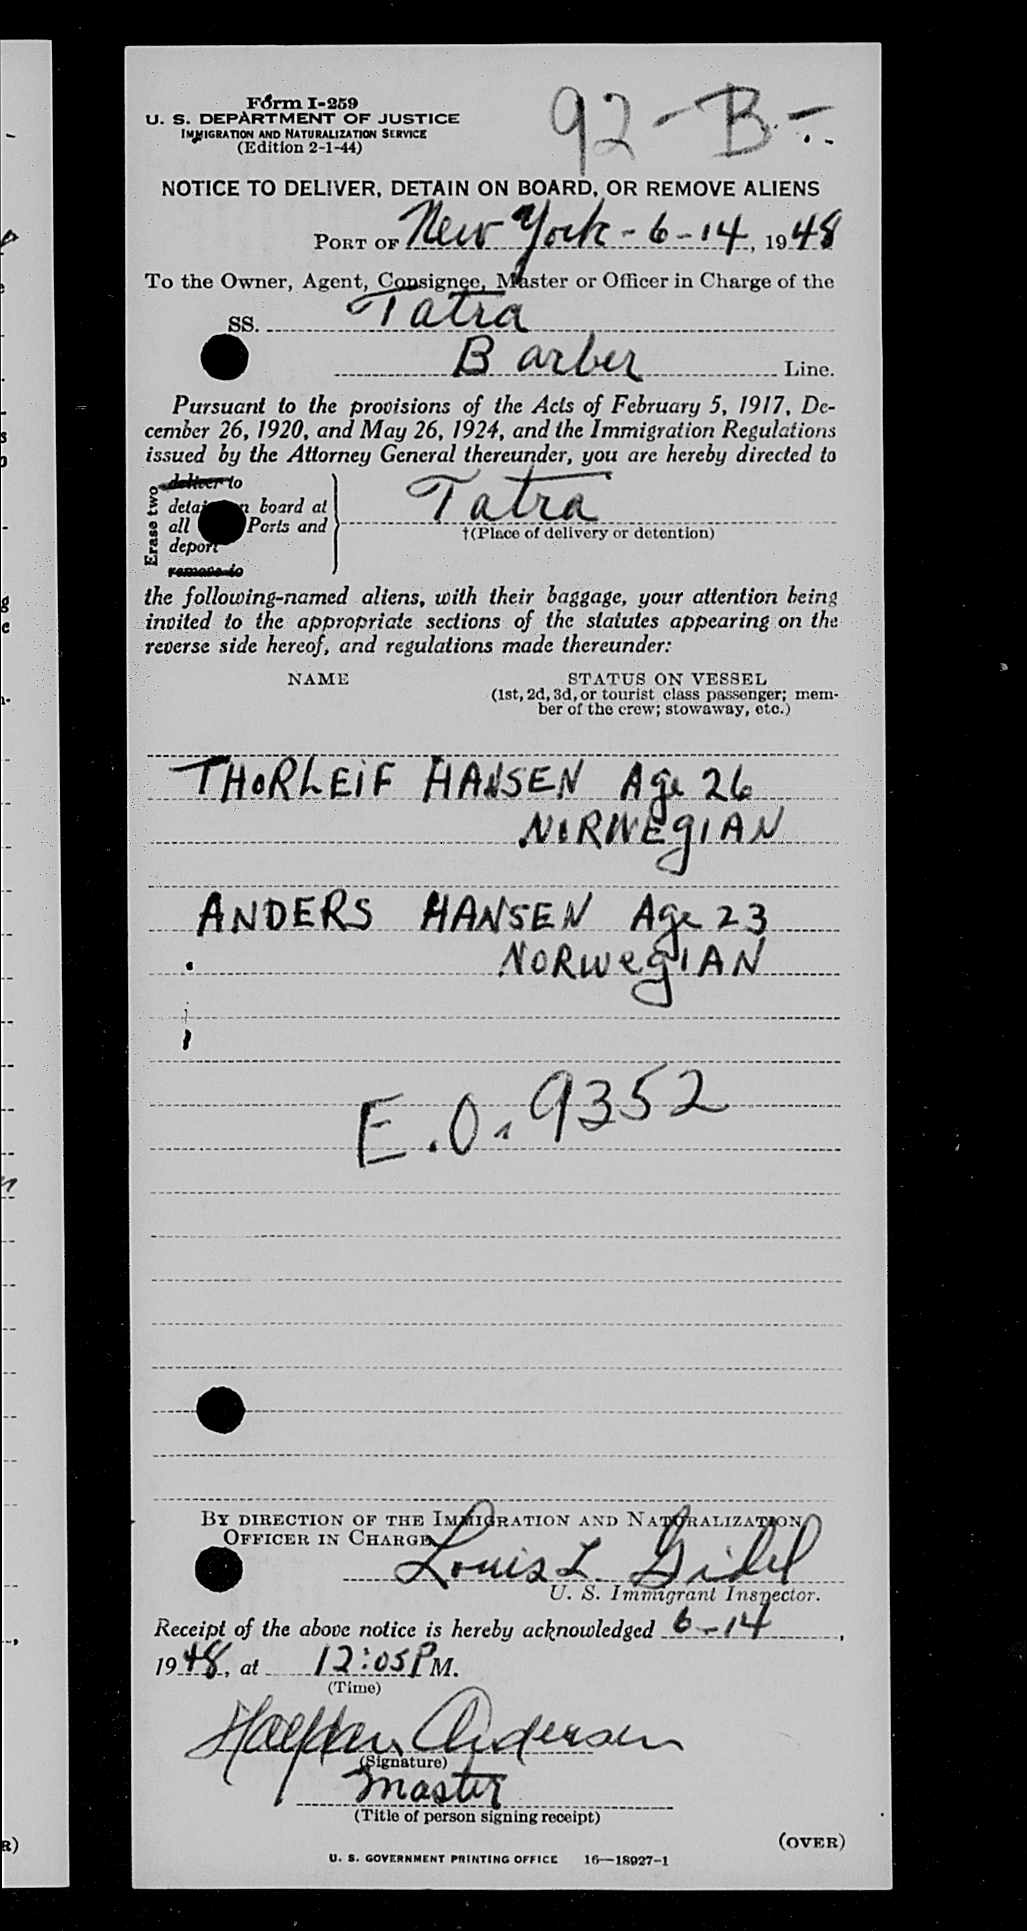 Form I-259
U. S. DEPARTMENT OF JUSTICE
IMMIGRATION AND NATURALIZATION SERVICE
(Edition 2-1-44)
92-B-
NOTICE TO DELIVER, DETAIN ON BOARD, OR REMOVE ALIENS
PORT OF New York - 6-14, 1948
To the Owner, Agent, Consignee, Master or Officer in Charge of the
SS. Tatra
Barber Line.
Pursuant to the provisions of the Acts of February 5, 1917, De-
cember 26, 1920, and May 26, 1924, and the Immigration Regulations
issued by the Attorney General thereunder, you are hereby directed to
Erase two
deliver to
detain on board at
all Ports and
deport
remove to
Tatra
†(Place of delivery or detention)
the following-named aliens, with their baggage, your attention being
invited to the appropriate sections of the statutes appearing on the
reverse side hereof, and regulations made thereunder:
NAME STATUS ON VESSEL
(1st, 2d, 3d, or tourist class passenger; mem-
ber of the crew; stowaway, etc.)
THORLEIF HANSEN Age 26
NORWEGIAN
ANDERS HANSEN Age 23
NORWEGIAN
E.O. 9352
BY DIRECTION OF THE IMMIGRATION AND NATURALIZATION
OFFICER IN CHARGE
Louis L.
U. S. Immigrant Inspector.
Receipt of the above notice is hereby acknowledged 6-14,
1948, at 12:05 P M.
(Time)
Halfdan Andersen
(Signature)
Master
(Title of person signing receipt)
(OVER)
U. S. GOVERNMENT PRINTING OFFICE 16—18927-1